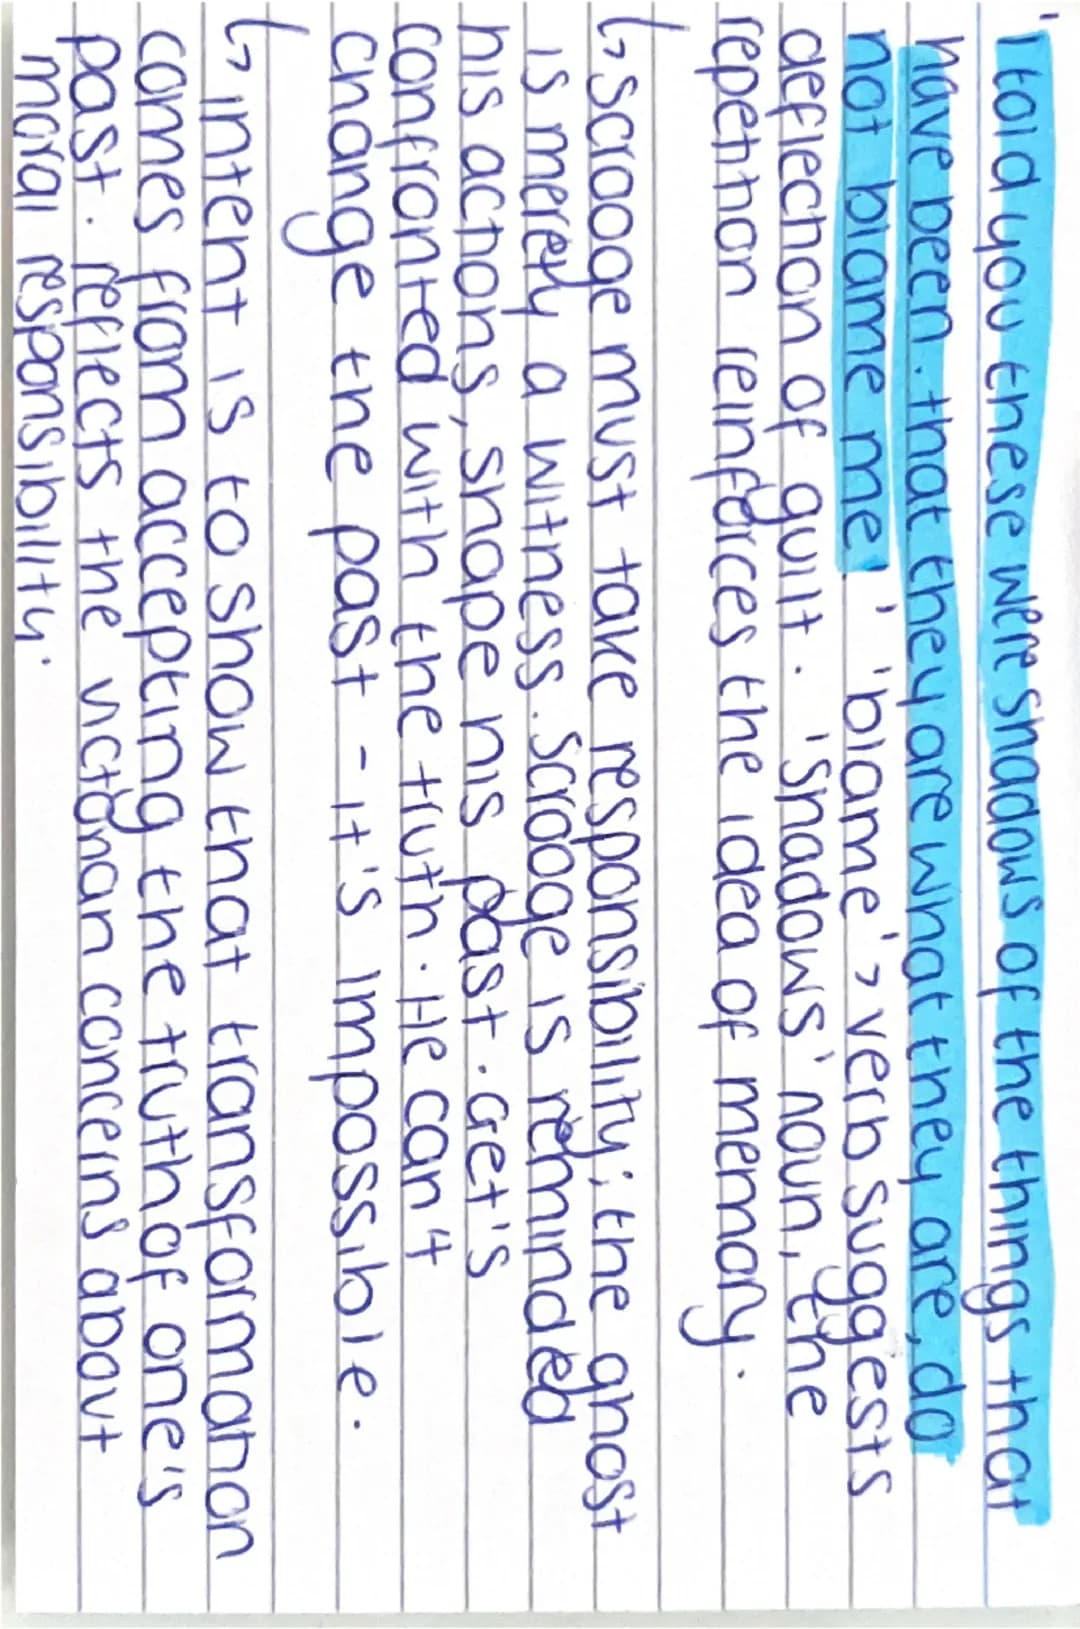 'I told you these were shadows of the things that
have been. that they are what they are, do
not blame me.' 'blame' > verb suggests
deflection of guilt. 'Shadows' noun, the
repetition reinforces the idea of memory.
↳ Scrooge must take responsibility; the ghost
is merely a witness. Scrooge is reminded
his actions, shape his past. Get's
confronted with the truth. He can't
change the past - it's impossible.
↳ intent is to show that transformation
comes from accepting the truth of one's
past. reflects the victorian concerns about
moral responsibility.